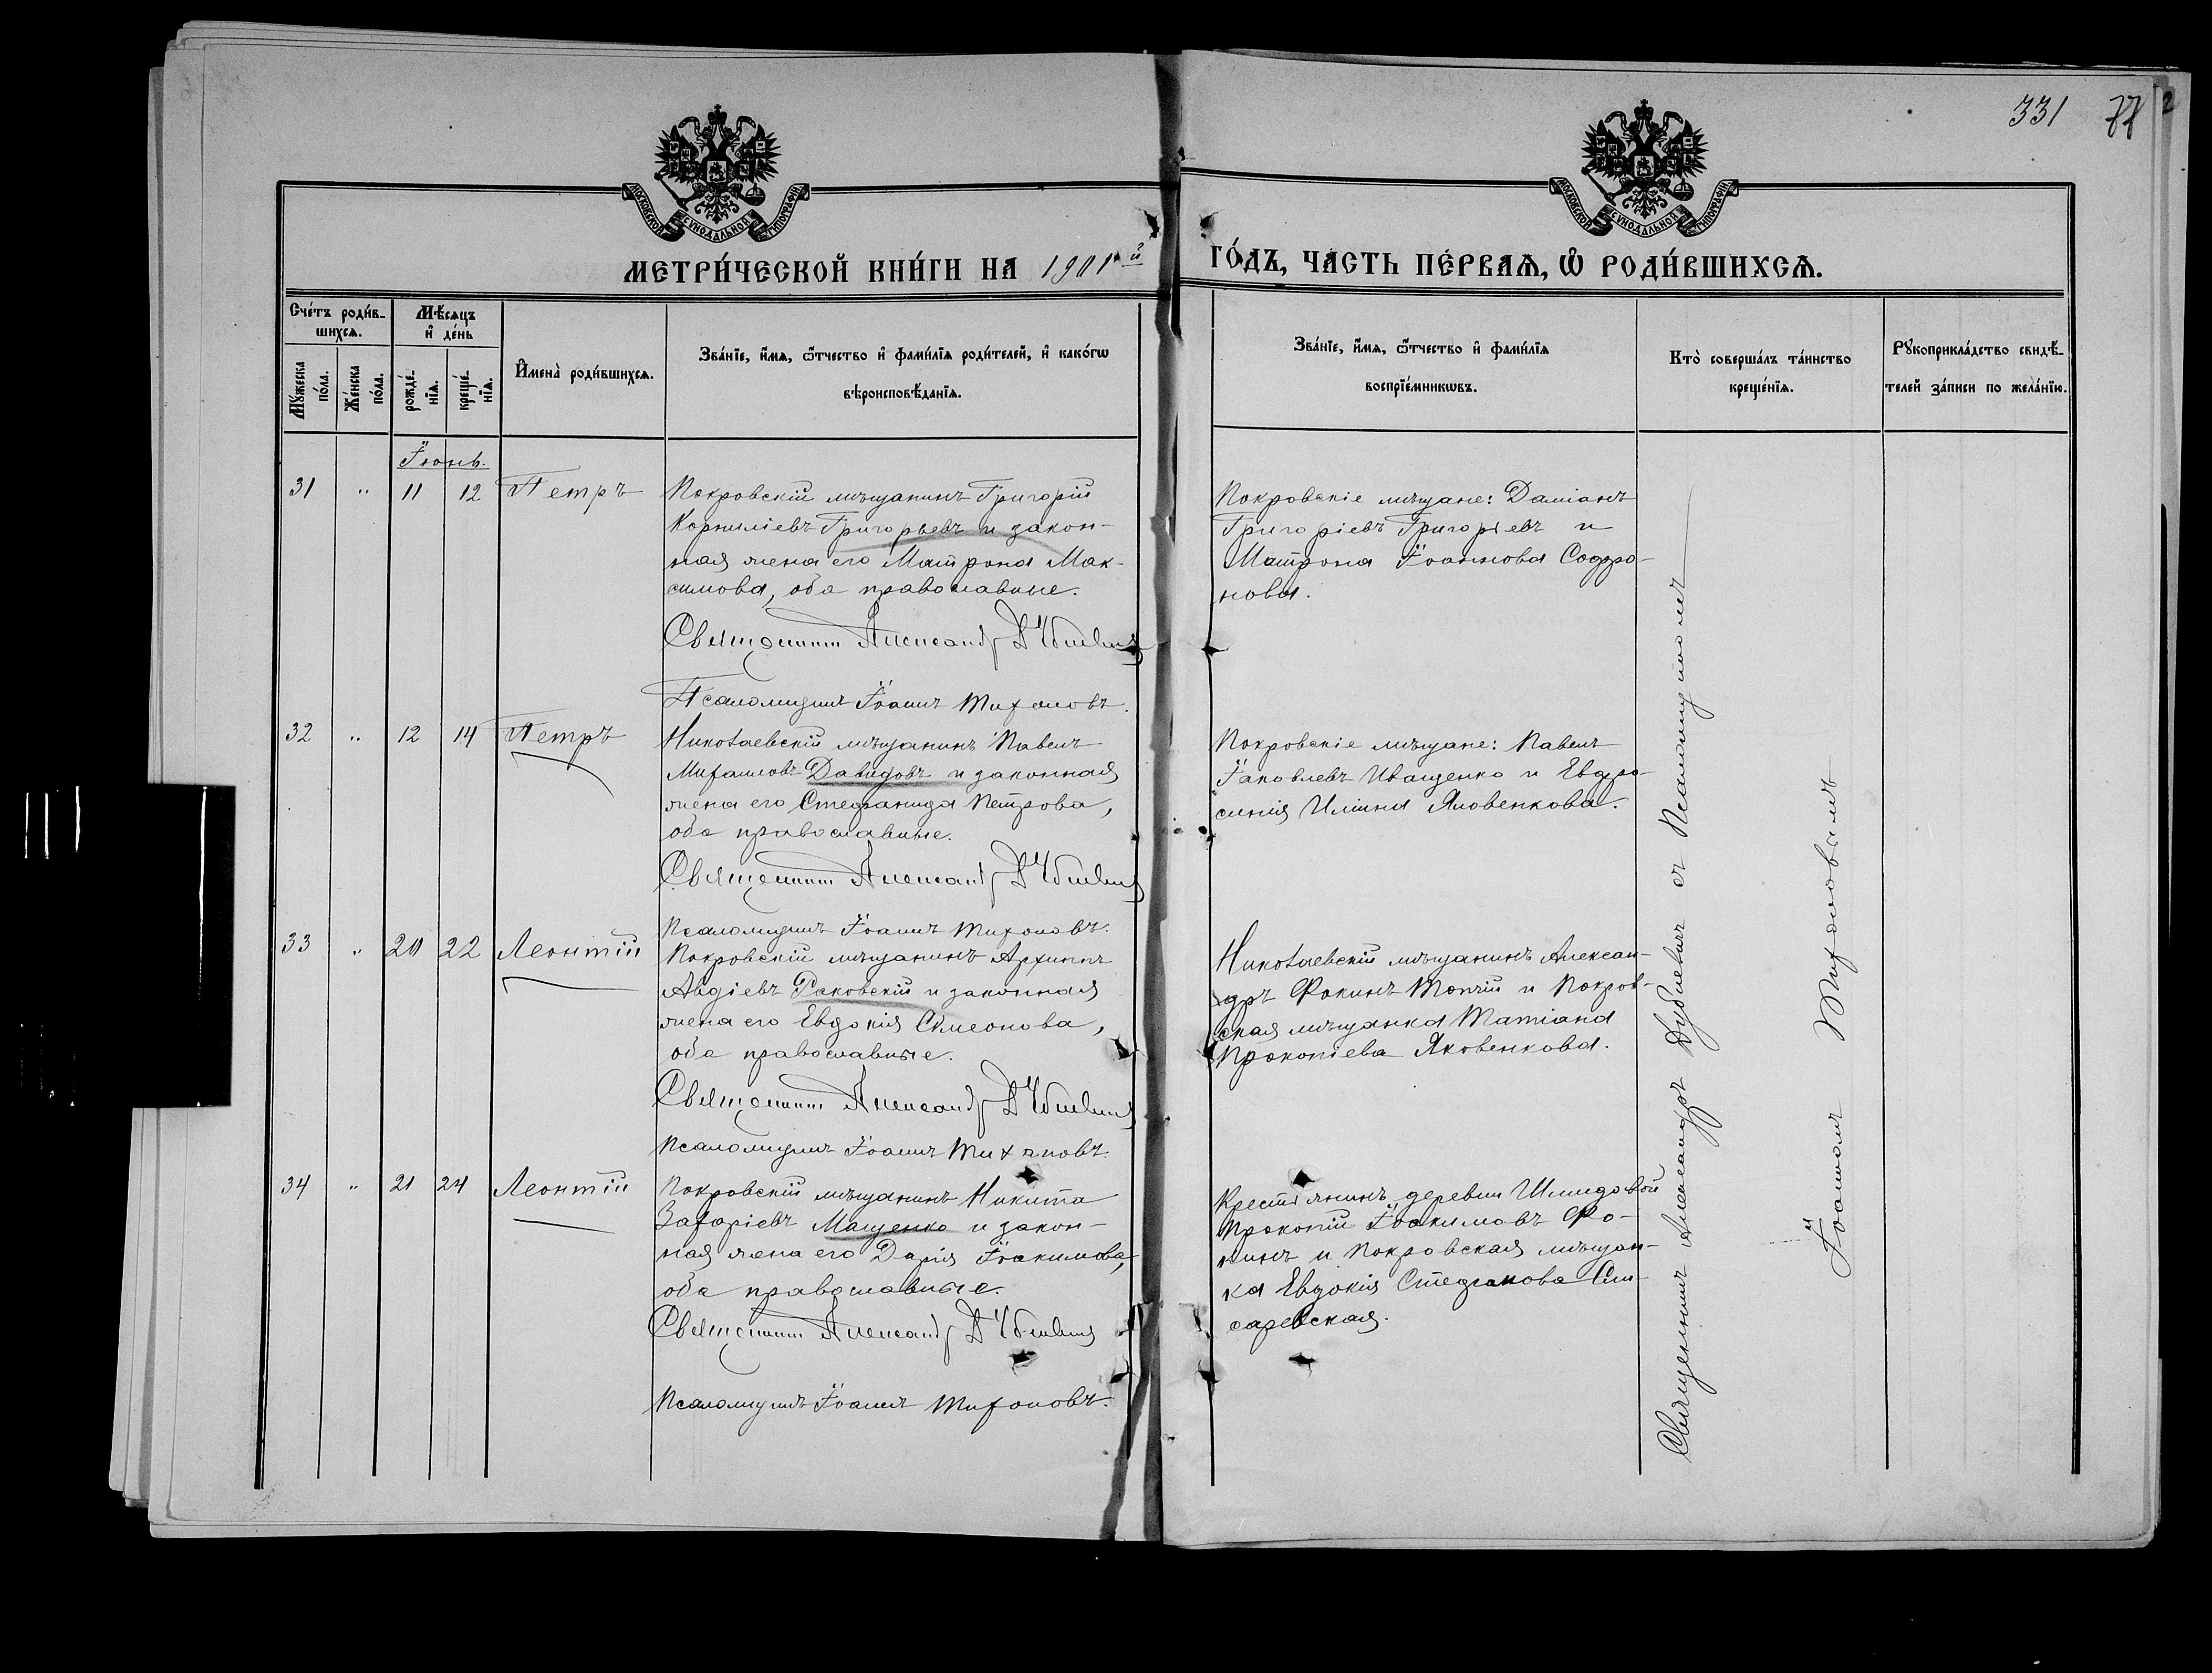 331 77
МОСКОВСКОЙ СѴНОДАЛЬНОЙ ТИПОГРАФІИ
МОСКОВСКОЙ СѴНОДАЛЬНОЙ ТИПОГРАФІИ
МЕТРИ́ЧЕСКОЙ КНИ́ГИ НА 1901й ГО́ДЪ, ЧА́СТЬ ПЕ́РВАѦ, Ѡ҆ РОДИ́ВШИХСѦ.
Сче́тъ роди́в-
шихсѧ.
Мꙋ́жеска по́ла.
Же́нска по́ла.
Мѣ́сѧцъ
и҆ де́нь
рожде́-
нїѧ.
креще́-
нїѧ.
И҆мена̀ роди́вшихсѧ.
Зва́нїе, и҆́мѧ, ѻ҆́тчество и҆ фами́лїѧ роди́телей, и҆ како́гѡ
вѣроисповѣ́данїѧ.
Зва́нїе, и҆́мѧ, ѻ҆́тчество и҆ фами́лїѧ
воспрїе́мникѡвъ.
Кто̀ соверша́лъ та́инство
креще́нїѧ.
Рꙋкоприкла́дство свидѣ́-
телей за́писи по жела́нїю.
Іюнь.
31 " 11 12 Петръ
Покровскій мѣщанинъ Григорій
Корниліевъ Григорьевъ и закон-
ная жена его Матрона Мак-
симова, оба православные.
Священникъ Александръ Дубневичъ
Псаломщикъ Іоаннъ Тихоновъ.
Покровскіе мѣщане: Даміанъ
Григоріевъ Григорьевъ и
Матрона Іоаннова Софро-
нова.
32 " 12 14 Петръ
Николаевскій мѣщанинъ Павелъ
Михаиловъ Давидовъ и законная
жена его Стефанида Петрова,
оба православные.
Священникъ Александръ Дубневичъ
Псаломщикъ Іоаннъ Тихоновъ.
Покровскіе мѣщане: Павелъ
Іаковлевъ Иващенко и Евфро-
синія Иліина Яковенкова.
33 " 20 22 Леонтій
Покровскій мѣщанинъ Архиппъ
Авдіевъ Раковскій и законная
жена его Евдокія Симеонова,
оба православные.
Священникъ Александръ Дубневичъ
Псаломщикъ Іоаннъ Тихоновъ.
Николаевскій мѣщанинъ Алексан-
дръ Фокинъ и Покров-
ская мѣщанка Татіана
Прокопіева Яковенкова.
34 " 21 24 Леонтій
Покровскій мѣщанинъ Никита
Захаріевъ Мащенко и закон-
ная жена его Дарія Іоакимова,
оба православные.
Священникъ Александръ Дубневичъ
Псаломщикъ Іоаннъ Тихоновъ.
Крестьянинъ деревни
Прокопій Іоакимовъ Фо-
кинъ и Покровская мѣщан-
ка Евдокія Стефанова Сли-
саревская.
Священникъ Александръ Дубневичъ съ Псаломщикомъ
Іоанномъ Тихоновымъ